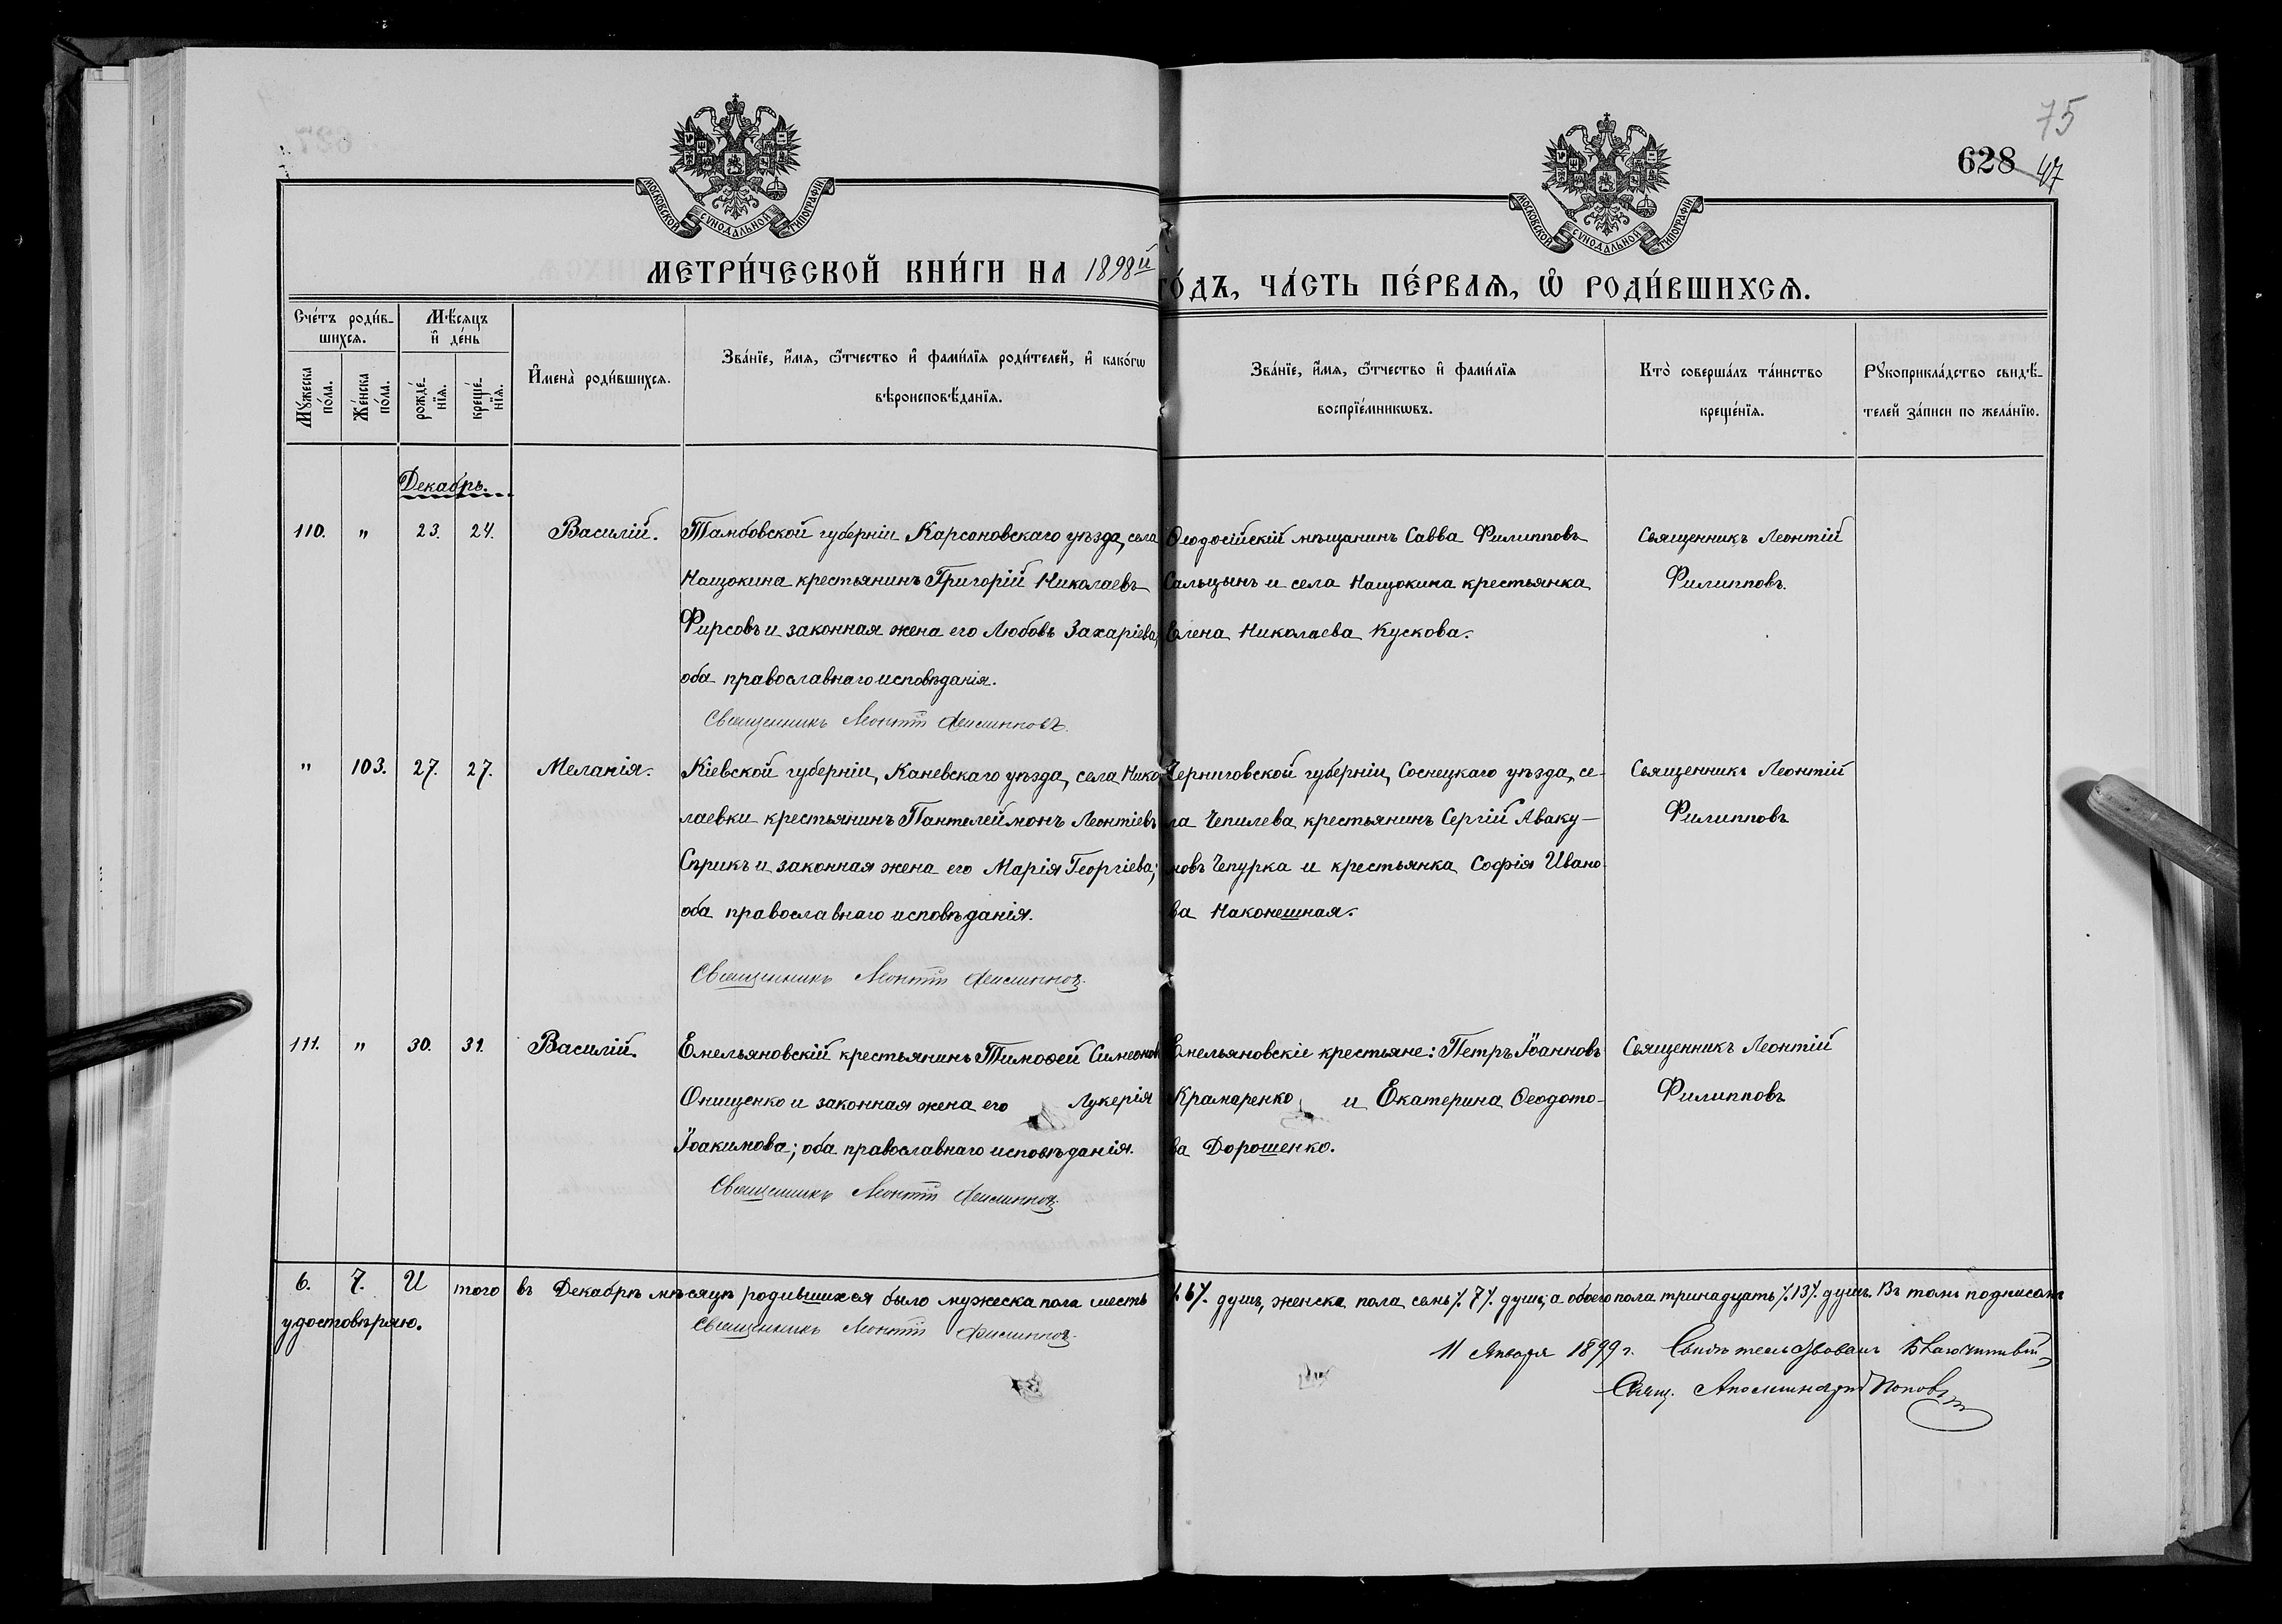 75
628 47
МОСКОВСКОЙ СУНОДАЛЬНОЙ ТИПОГРАФІИ
МОСКОВСКОЙ СУНОДАЛЬНОЙ ТИПОГРАФІИ
МЕТРИ́ЧЕСКОЙ КНИ́ГИ НА 1898й
ГО́ДЪ, ЧА́СТЬ ПЕ́РВАѦ, Ѡ҆ РОДИ́ВШИХСѦ.
Сче́тъ роди́в-
шихсѧ.
Мѣ́сѧцъ
и҆ де́нь
Мꙋ́жеска
по́ла.
Же́нска
по́ла.
рожде́-
нїѧ.
креще́-
нїѧ.
И҆мена̀ роди́вшихсѧ.
Зва́нїе, и҆́мѧ, ѻ҆́тчество и҆ фами́лїѧ роди́телей, и҆ како́гѡ
вѣроисповѣ́данїѧ.
Зва́нїе, и҆́мѧ, ѻ҆́тчество и҆ фами́лїѧ
воспрїе́мникѡвъ.
Кто̀ соверша́лъ та́инство
креще́нїѧ.
Рꙋкоприкла́дство свидѣ́-
телей за́писи по жела́нїю.
Декабрь.
110. " 23. 24. Василій. Тамбовской губерніи Карсоновскаго уѣзда, села
Нащокина крестьянинъ Григорій Николаевъ
Фирсовъ и законная жена его Любовь Захаріева,
оба православнаго исповѣданія.
Священникъ Леонтій Филипповъ.
Ѳеодосійскій мѣщанинъ Савва Филипповъ
Сальцынъ и села Нащокина крестьянка
Елена Николаева Кускова.
Священникъ Леонтій
Филипповъ.
" 103. 27. 27. Меланія. Кіевской губерніи, Каневскаго уѣзда, села Нико-
лаевки крестьянинъ Пантелеймонъ Леонтіевъ
Сѣрикъ и законная жена его Марія Георгіева;
оба православнаго исповѣданія.
Священникъ Леонтій Филипповъ.
Черниговской губерніи, Соснецкаго уѣзда, се-
ла Чепилева крестьянинъ Сергій Аваку-
мовъ Чепурка и крестьянка Софія Ивано-
ва Наконешная.
Священникъ Леонтій
Филипповъ
111. " 30. 31. Василій. Емельяновскій крестьянинъ Тимоѳей Симеонов
Онищенко и законная жена его Лукерія
Іоакимова; оба православнаго исповѣданія.
Священникъ Леонтій Филипповъ.
Емельяновскіе крестьяне: Петръ Іоанновъ
Крамаренко и Екатерина Ѳеодото-
ва Дорошенко.
Священникъ Леонтій
Филипповъ
6. 7. Итого въ Декабрѣ мѣсяцѣ родившихся было мужеска пола шесть ⁒6⁒. душъ, женска пола семь ⁒7⁒. душъ; а обоего пола тринадцать ⁒13⁒. душъ. Въ томъ подписомъ
удостовѣряю.
Священникъ Леонтій Филипповъ.
11 Января 1899 г. Свидѣтельствовалъ Благочинный
Свящ. Аполлинарій Поповъ